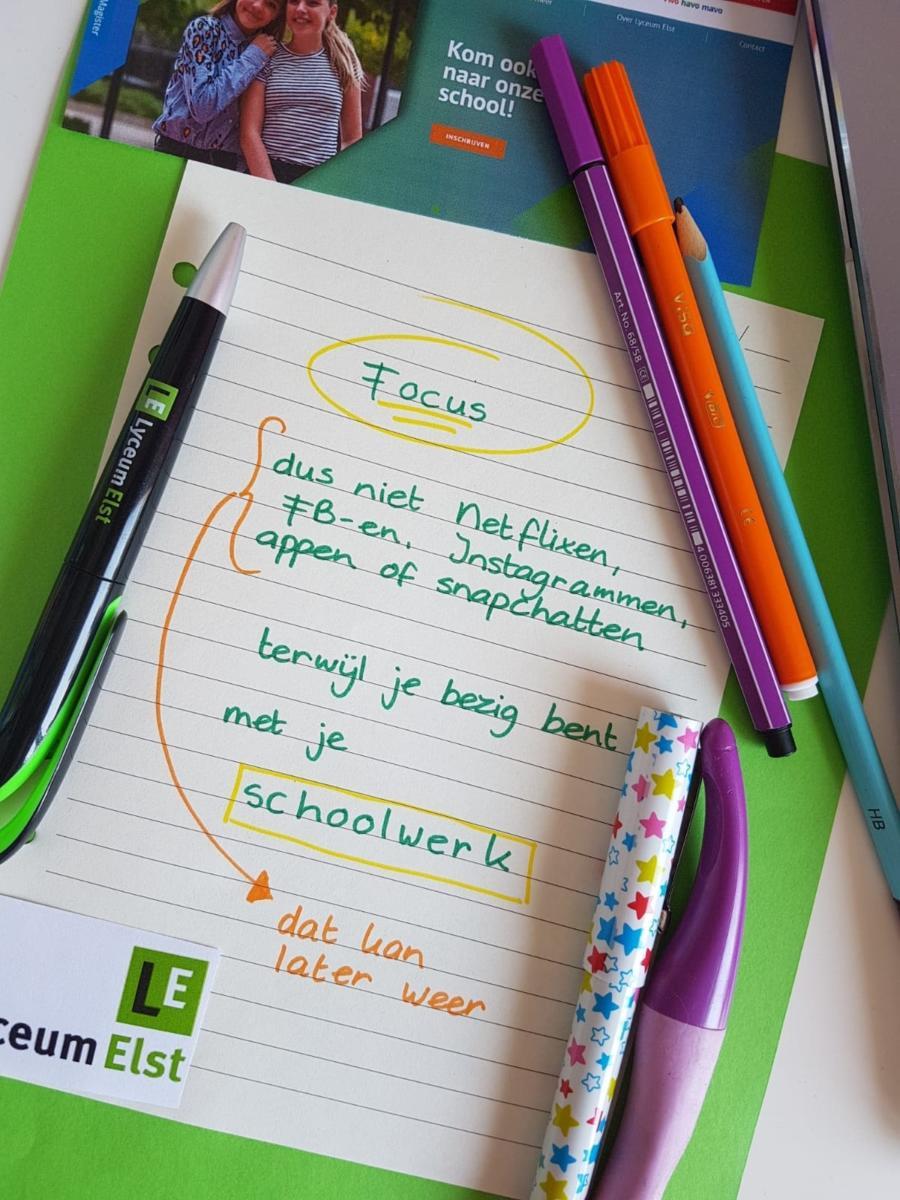 Magister
Over Lyceum Elst
Contact
havo mavo
Kom ook
naar onze
school!
INSCHRIJVEN
Art.No.68/58
4 006381 333405
visa
HB
LE Lyceum Elst
Focus
dus niet Netflixen,
FB-en, Instagrammen,
appen of snapchatten
terwijl je bezig bent
met je
schoolwerk
dat kan
later weer
LE
ceum Elst